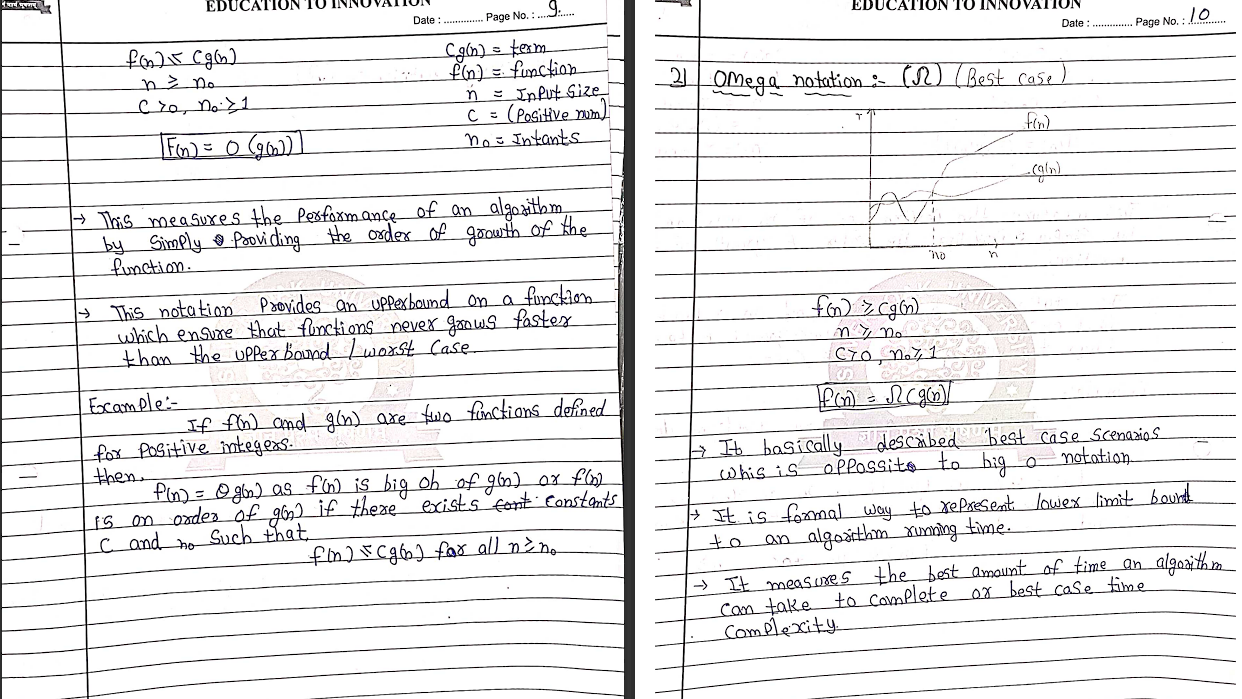 EDUCATION TO INNOVATION
Date : ............. Page No. : ....9.....
f(n) ≤ cg(n)
n ≥ no
C>0, no≥1
F(n) = O (g(n))
Cg(n) = term
f(n) = function
n = Input Size
C = (Positive num)
no = Intants
→ This measures the Performance of an algorithm
by Simply Providing the order of growth of the
function.
→ This notation Provides an upperbound on a function
which ensure that functions never grows faster
than the upper bound / worst Case.
Example:-
If f(n) and g(n) are two functions defined
for Positive integers.
then,
f(n) = Og(n) as f(n) is big oh of g(n) or f(n)
is on order of g(n) if there exists cont constants
C and no Such that
f(n) ≤ cg(n) for all n ≥ no
EDUCATION TO INNOVATION
Date : ............. Page No. : 10
2) Omega notation :- (Ω) (Best case)
f(n)
cg(n)
no n
f(n) ≥ cg(n)
n ≥ no
C>0, no≥1
f(n) = Ω(g(n))
→ It basically described best case scenarios
whis is oppossite to big o notation
→ It is formal way to represent lower limit bound
to an algorithm running time.
→ It measures the best amount of time an algorithm
can take to complete or best case time
complexity.